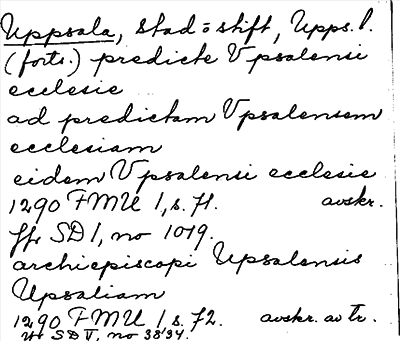 Uppsala, stad o stift, Upps. l.
(forts.) predicte Vpsalensi
ecclesie
ad predictam Vpsalensem
ecclesiam
eidem Vpsalensi ecclesie
1290 FMU 1, s. 71. avskr.
jfr SD 1, no 1019.
archiepiscopi Upsalensis
Upsaliam
1290 FMU 1, s. 72. avskr. av tr.
ur SD V, no 3834.